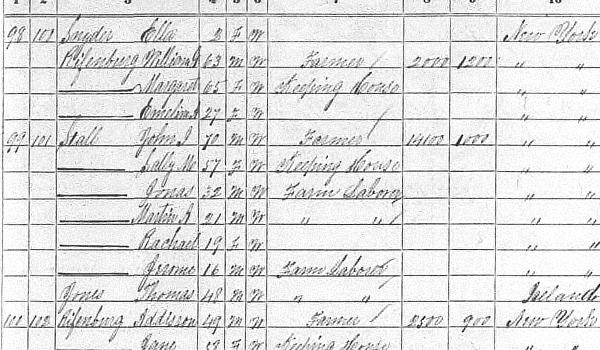 1 2 3 4 5 6 7 8 9 10
98 101 Snyder Ella 2 F W New York
Rifenburg William J 63 M W Farmer / 2000 1200 " "
—— Margaret 65 F W Keeping House " "
—— Emeline 27 F W / " "
99 101 Stall John J 70 M W Farmer / 14100 1000 " "
—— Sally M 57 F W Keeping House " "
—— Jonas 32 M W Farm Laborer " "
—— Martin A 21 M W " " / " "
—— Rachael 19 F W " "
—— Jerome 16 M W Farm Laborer " "
Jones Thomas 48 M W " " Ireland
101 102 Rifenburg Addison 49 M W Farmer / 2500 900 New York
Jane F W Keeping House